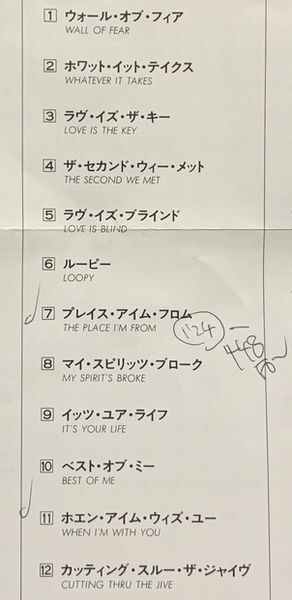 1 ウォール・オブ・フィア
WALL OF FEAR
2 ホワット・イット・テイクス
WHATEVER IT TAKES
3 ラヴ・イズ・ザ・キー
LOVE IS THE KEY
4 ザ・セカンド・ウィー・メット
THE SECOND WE MET
5 ラヴ・イズ・ブラインド
LOVE IS BLIND
6 ルーピー
LOOPY
7 プレイス・アイム・フロム
THE PLACE I'M FROM
1:24
448
8 マイ・スピリッツ・ブローク
MY SPIRIT'S BROKE
9 イッツ・ユア・ライフ
IT'S YOUR LIFE
10 ベスト・オブ・ミー
BEST OF ME
11 ホエン・アイム・ウィズ・ユー
WHEN I'M WITH YOU
12 カッティング・スルー・ザ・ジャイヴ
CUTTING THRU THE JIVE